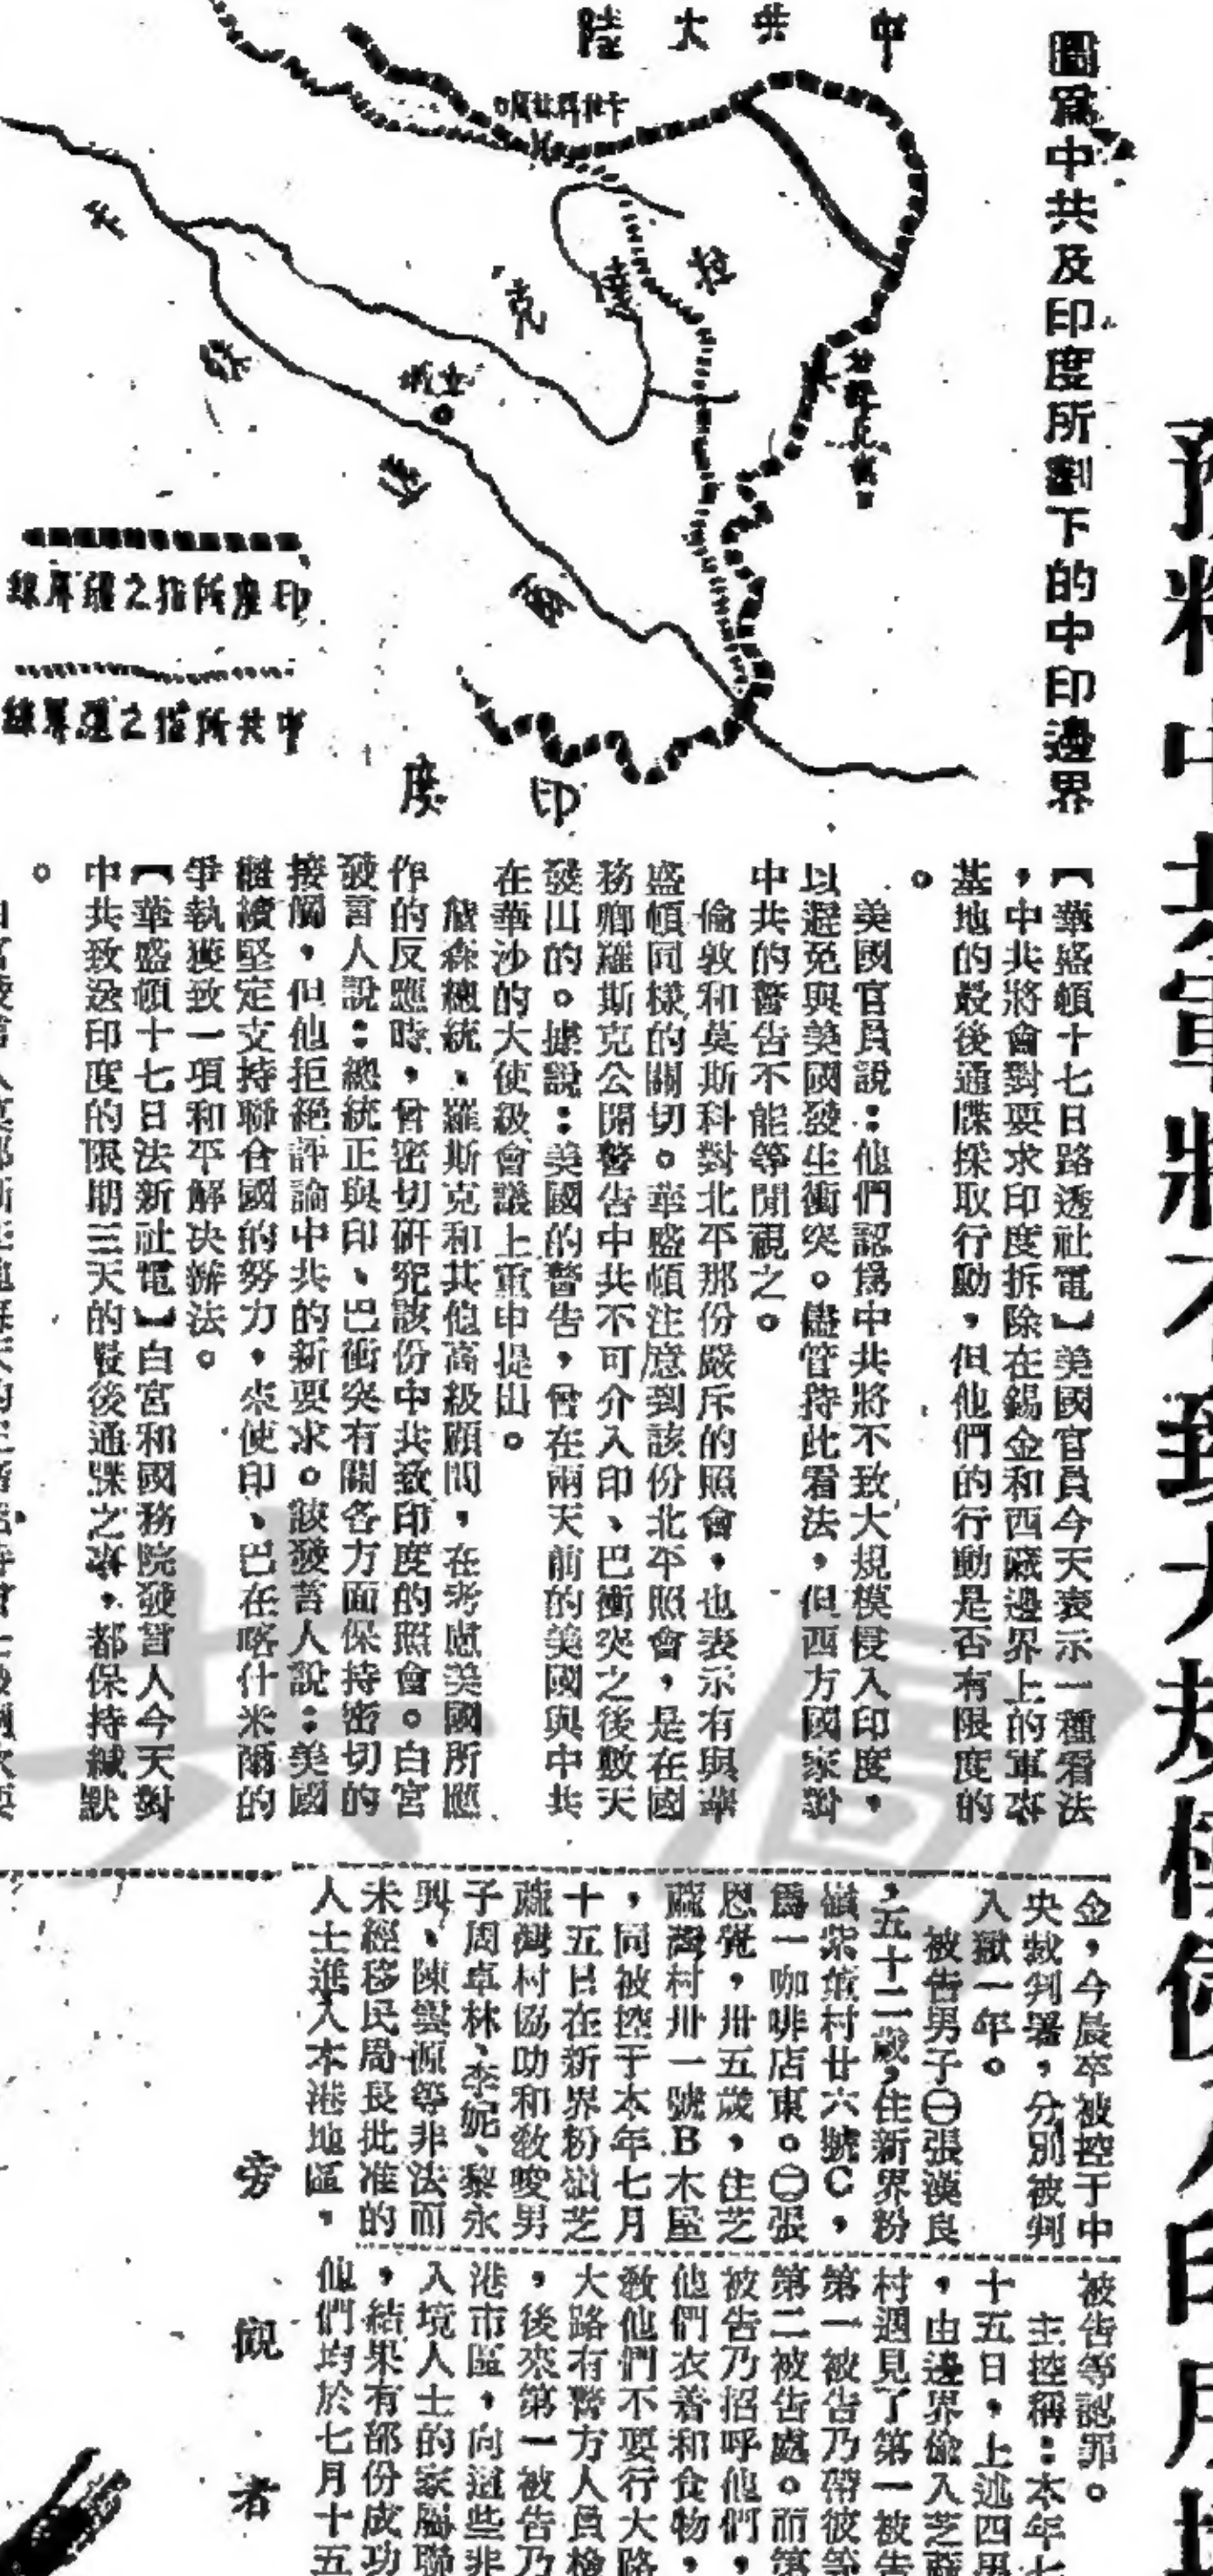 預料中共軍將不致大規模侵入印度
圖為中共及印度所劃下的中印邊界
中共大陸
拉達克
喀什米爾
印度
印度所指之疆界線
中共所指之疆界線
【華盛頓十七日路透社電】美國官員今天表示一種看法
，中共將會對要求印度拆除在錫金和西藏邊界上的軍事
基地的最後通牒採取行動，但他們的行動是否有限度的
。
美國官員說：他們認爲中共將不致大規模侵入印度，
以避免與美國發生衝突。儘管持此看法，但西方國家對
中共的警告不能等閒視之。
倫敦和莫斯科對北平那份嚴斥的照會，也表示有與華
盛頓同樣的關切。華盛頓注意到該份北平照會，是在國
務卿羅斯克公開警告中共不可介入印、巴衝突之後數天
發出的。據說：美國的警告，曾在兩天前的美國與中共
在華沙的大使級會議上重申提出。
詹森總統、羅斯克和其他高級顧問，在考慮美國所應
作的反應時，曾密切研究該份中共致印度的照會。白宮
發言人說：總統正與印、巴衝突有關各方面保持密切的
接觸，但他拒絕評論中共的新要求。該發言人說：美國
繼續堅定支持聯合國的努力，來使印、巴在喀什米爾的
爭執獲致一項和平解決辦法。
【華盛頓十七日法新社電】白宮和國務院發言人今天對
中共致送印度的限期三天的最後通牒之事，都保持緘默
。
金，今晨卒被控于中
央裁判署，分別被判
入獄一年。
被告男子㊀張漢良
，五十二歲，住新界粉
嶺崇謙村廿六號C，
爲一咖啡店東。㊁張
恩覺，卅五歲，住芝
蔴灣村卅一號B木屋
，同被控于本年七月
十五日在新界粉嶺芝
蔴灣村協助和教唆男
子周卓林、李妮、黎永
興、陳雲源等非法而
未經移民局長批准的
人士進入本港地區，
被告等認罪。
主控稱：本年七
十五日，上述四男
，由邊界偷入芝蔴
村遇見了第一被告
第一被告乃帶彼等
第二被告處。而第
被告乃招呼他們，
他們衣着和食物，
教他們不要行大路
大路有警方人員檢
，後來第一被告乃
港市區，向這些非
入境人士的家屬聯
，結果有部份成功
他們均於七月十五
旁觀者